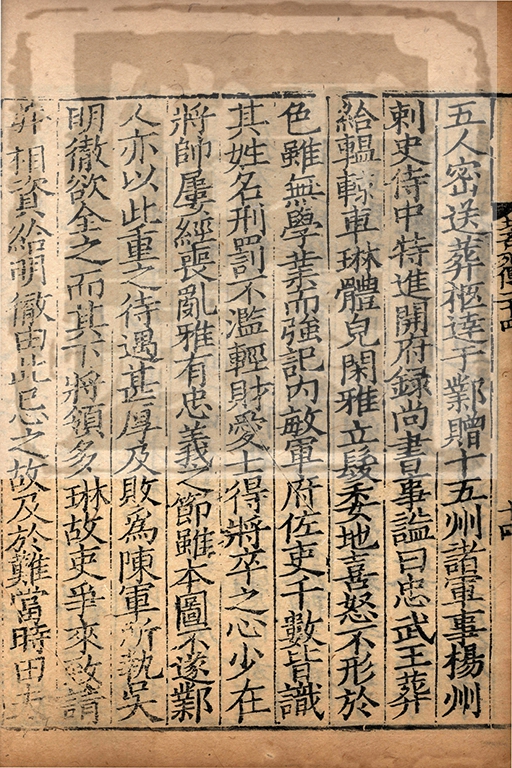 五人密送葬柩達于鄴贈十五州諸軍事楊州
刺史侍中特進開府録尚書事諡曰忠武王葬
給轀輬車琳體皃閑雅立髮委地喜怒不形於
色雖無學業而強記内敏軍府佐吏千數皆識
其姓名刑罰不濫輕財愛士得將卒之心少在
將帥屢經喪亂雅有忠義之節雖本圖不遂鄴
人亦以此重之待遇甚厚及敗為陳軍所執吳
明徹欲全之而其下將領多琳故吏爭來致請
并相資給明徹由此忌之故及於難當時田夫